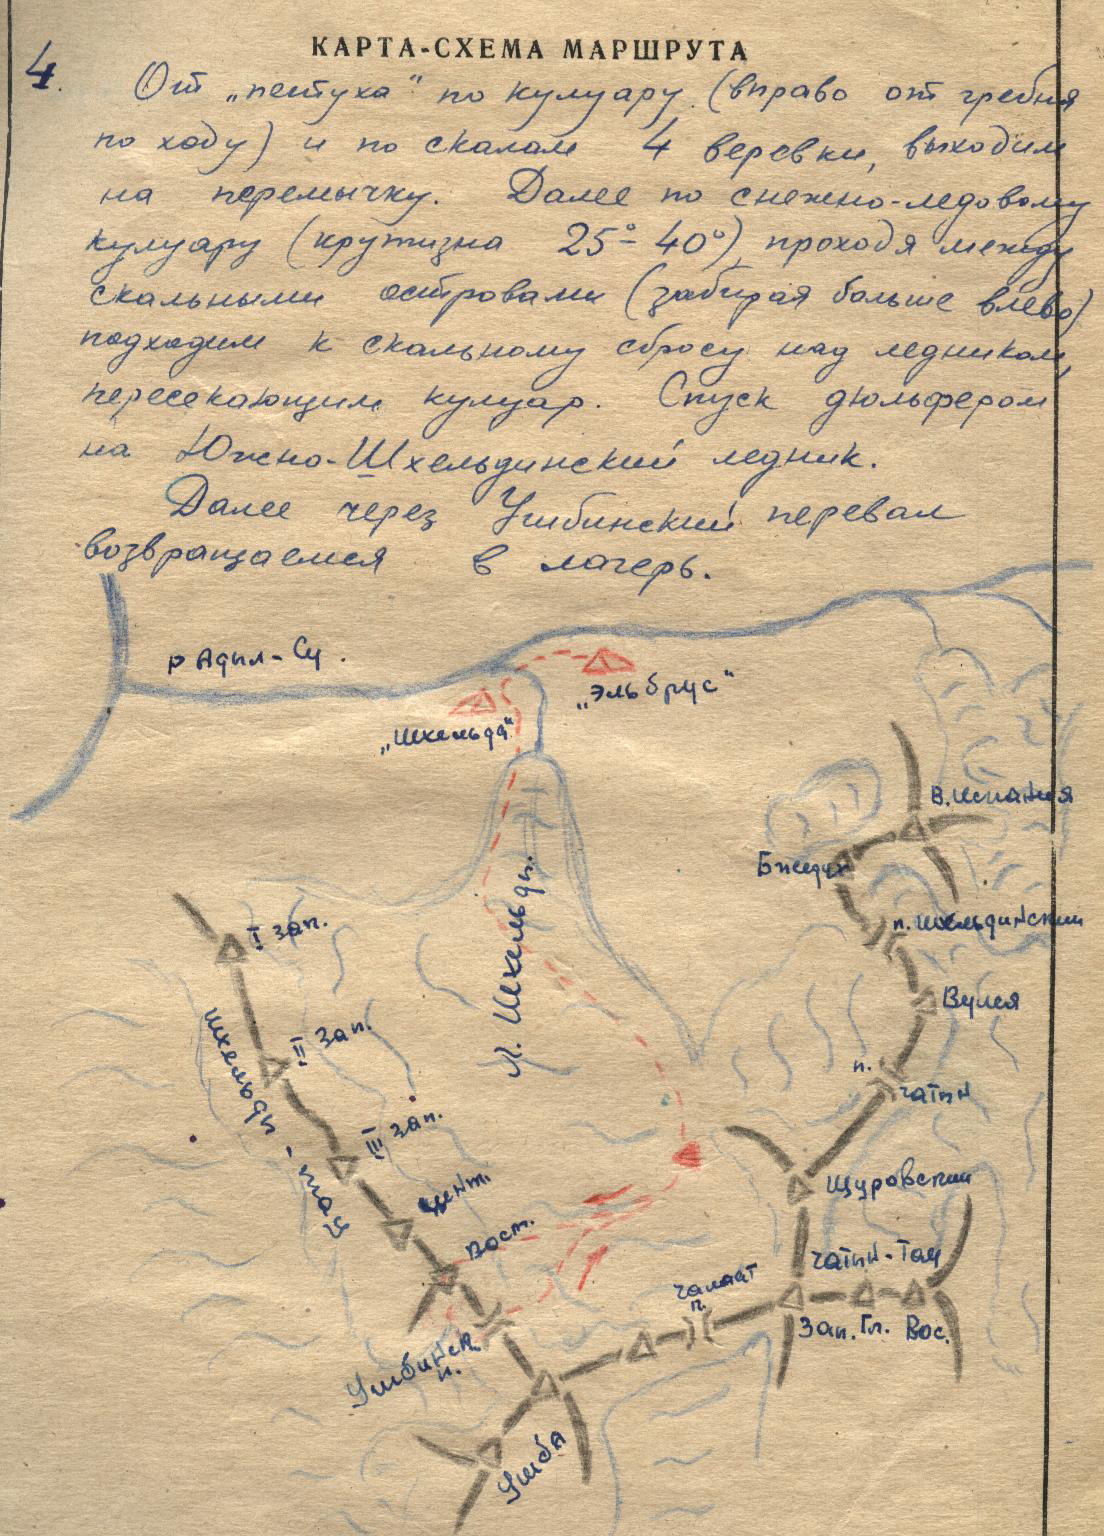 КАРТА-СХЕМА МАРШРУТА
4.
От „петуха“ по кулуару (вправо от гребня
по ходу) и по скалам 4 веревки, выходим
на перемычку. Далее по снежно-ледовому
кулуару (крутизна 25°-40°) проходя между
скальными островами (забирая больше влево)
подходим к скальному сбросу над ледником,
пересекающим кулуар. Спуск дюльфером
на Южно-Шхельдинский ледник.
Далее через Ушбинский перевал
возвращаемся в лагерь.
р Адыл-Су.
„Эльбрус“
„Шхельда“
В. Испания
Бжедух
п. Шхельдинский
I Зап.
Л. Шхельды.
Вулея
II Зап.
п.
Чатын
Шхельды-тау
III Зап.
Щуровский
Цент.
Вост.
Чатын-Тау
Чалаат
п.
Зап. Гл. Вос.
Ушбинск.
п.
Ушба